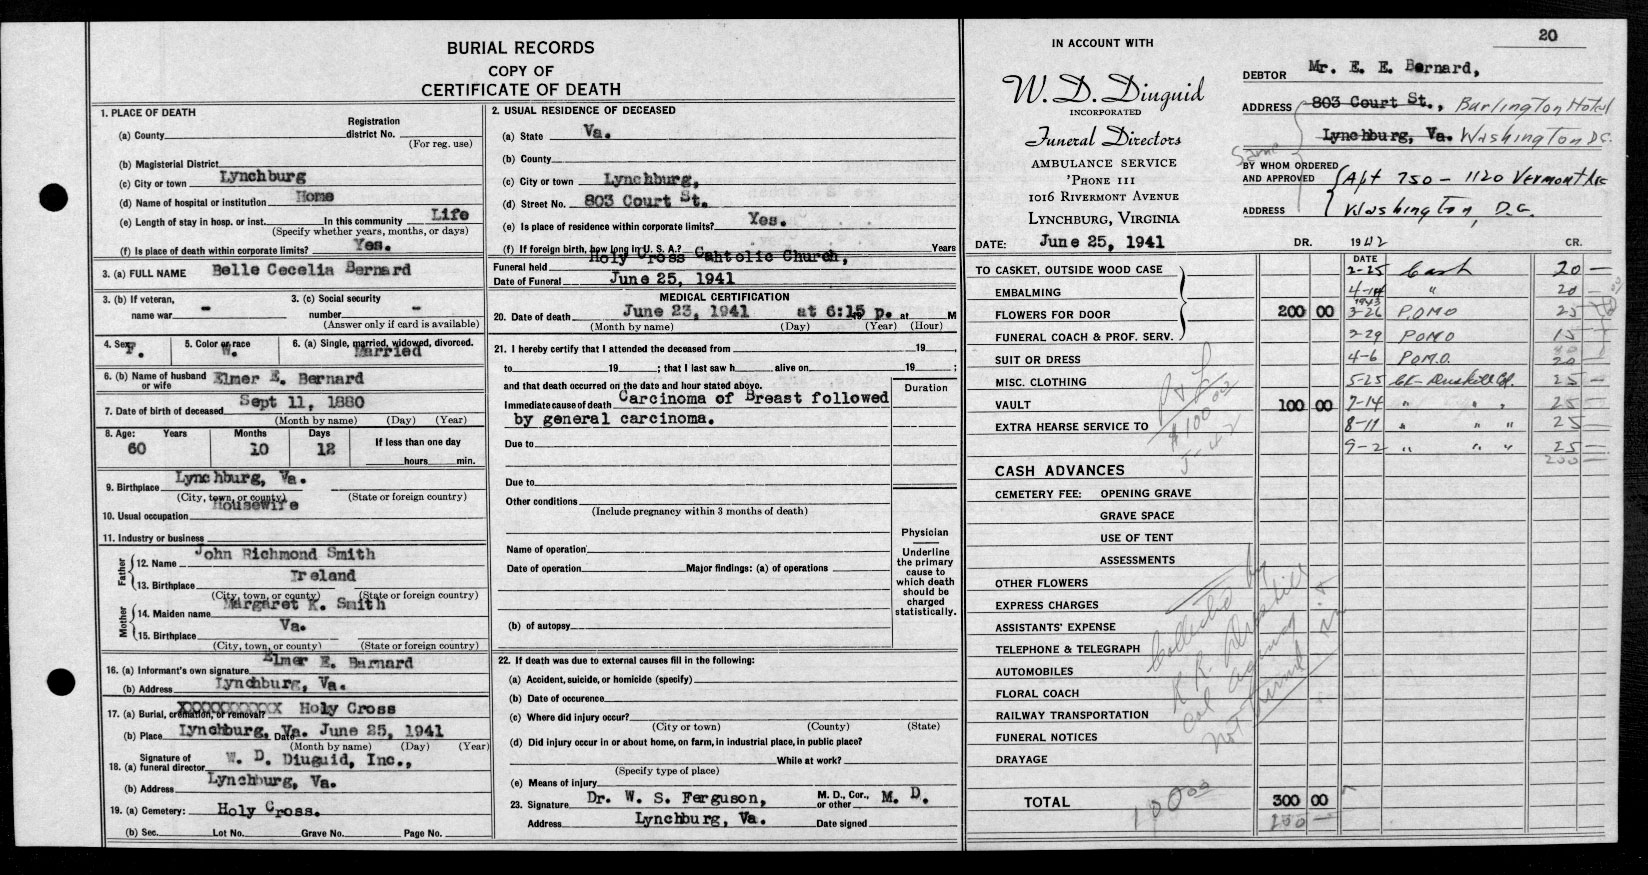 BURIAL RECORDS
COPY OF
CERTIFICATE OF DEATH
1. PLACE OF DEATH
Registration
(a) County district No.
(For reg. use)
(b) Magisterial District
(c) City or town Lynchburg
(d) Name of hospital or institution Home
(e) Length of stay in hosp. or inst. In this community Life
(Specify whether years, months, or days)
(f) Is place of death within corporate limits? Yes.
3. (a) FULL NAME Belle Cecelia Bernard
3. (b) If veteran, 3. (c) Social security
name war - number -
(Answer only if card is available)
4. Sex F. 5. Color or race W. 6. (a) Single, married, widowed, divorced. Married
6. (b) Name of husband or wife Elmer E. Bernard
7. Date of birth of deceased Sept 11, 1880
(Month by name) (Day) (Year)
8. Age: Years Months Days If less than one day
60 10 12 hours min.
9. Birthplace Lynchburg, Va.
(City, town, or county) (State or foreign country)
10. Usual occupation Housewife
11. Industry or business
Father
12. Name John Richmond Smith
13. Birthplace Ireland
(City, town, or county) (State or foreign country)
Mother
14. Maiden name Margaret K. Smith
15. Birthplace Va.
(City, town, or county) (State or foreign country)
16. (a) Informant's own signature Elmer E. Barnard
(b) Address Lynchburg, Va.
17. (a) Burial, cremation, or removal? XXXXXXXXXXX Holy Cross
(b) Place Lynchburg, Va. Date June 25, 1941
(Month by name) (Day) (Year)
18. (a) Signature of funeral director W. D. Diuguid, Inc.,
(b) Address Lynchburg, Va.
19. (a) Cemetery: Holy Cross.
(b) Sec. Lot No. Grave No. Page No.
2. USUAL RESIDENCE OF DECEASED
(a) State Va.
(b) County
(c) City or town Lynchburg,
(d) Street No. 803 Court St.
(e) Is place of residence within corporate limits? Yes.
(f) If foreign birth, how long in U. S. A.? Years
Funeral held Holy Cross Cahtolic Church,
Date of Funeral June 25, 1941
MEDICAL CERTIFICATION
20. Date of death June 23, 1941 at 6:15 p. 19 at M
(Month by name) (Day) (Year) (Hour)
21. I hereby certify that I attended the deceased from 19 ,
to 19 ; that I last saw h alive on 19 ;
and that death occurred on the date and hour stated above. Duration
Immediate cause of death Carcinoma of Breast followed
by general carcinoma.
Due to
Due to
Other conditions
(Include pregnancy within 3 months of death)
Name of operation
Date of operation Major findings: (a) of operations
(b) of autopsy
Physician
Underline
the primary
cause to
which death
should be
charged
statistically.
22. If death was due to external causes fill in the following:
(a) Accident, suicide, or homicide (specify)
(b) Date of occurence
(c) Where did injury occur?
(City or town) (County) (State)
(d) Did injury occur in or about home, on farm, in industrial place, in public place?
While at work?
(Specify type of place)
(e) Means of injury
23. Signature Dr. W. S. Ferguson, M. D., Cor., or other M. D.
Address Lynchburg, Va. Date signed
20
IN ACCOUNT WITH
W. D. Diuguid
INCORPORATED
Funeral Directors
AMBULANCE SERVICE
'PHONE 111
1016 RIVERMONT AVENUE
LYNCHBURG, VIRGINIA
DEBTOR Mr. E. E. Bernard,
ADDRESS 803 Court St., Burlington Hotel
Lynchburg, Va. Washington D.C.
Same
BY WHOM ORDERED
AND APPROVED Apt 750 - 1120 Vermont Ave
ADDRESS Washington, D.C.
DATE: June 25, 1941 DR. 1942 CR.
DATE
TO CASKET, OUTSIDE WOOD CASE 2-25 Cash 20 —
EMBALMING 4-14 " 20 —
1943
FLOWERS FOR DOOR 200 00 3-26 P.O.M.O 25
FUNERAL COACH & PROF. SERV. 2-29 POMO 15
SUIT OR DRESS 4-6 P.O.M.O. 20
MISC. CLOTHING 5-25 25 —
VAULT 100 00 7-14 " " " 25 —
EXTRA HEARSE SERVICE TO 8-11 " " " 25
9-2 " " " 25 —
200 —
P & L
$100 00
5-42
CASH ADVANCES
CEMETERY FEE: OPENING GRAVE
GRAVE SPACE
USE OF TENT
ASSESSMENTS
OTHER FLOWERS
EXPRESS CHARGES
ASSISTANTS' EXPENSE
TELEPHONE & TELEGRAPH
AUTOMOBILES
FLORAL COACH
RAILWAY TRANSPORTATION
FUNERAL NOTICES
DRAYAGE
TOTAL 300 00
100 00